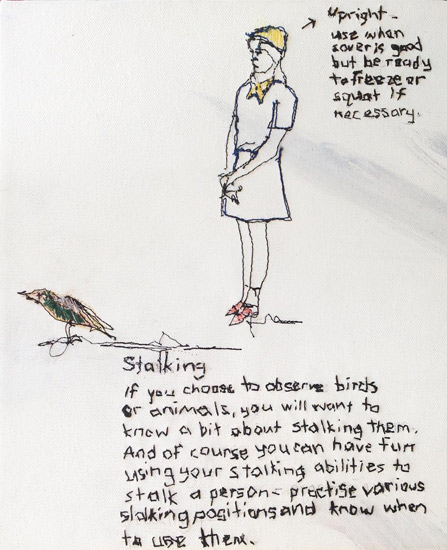 Upright -
use when
cover is good
but be ready
to freeze or
squat if
necessary.
Stalking
If you choose to observe birds
or animals, you will want to
know a bit about stalking them.
And of course you can have fun
using your stalking abilities to
stalk a person - practise various
stalking positions and know when
to use them.